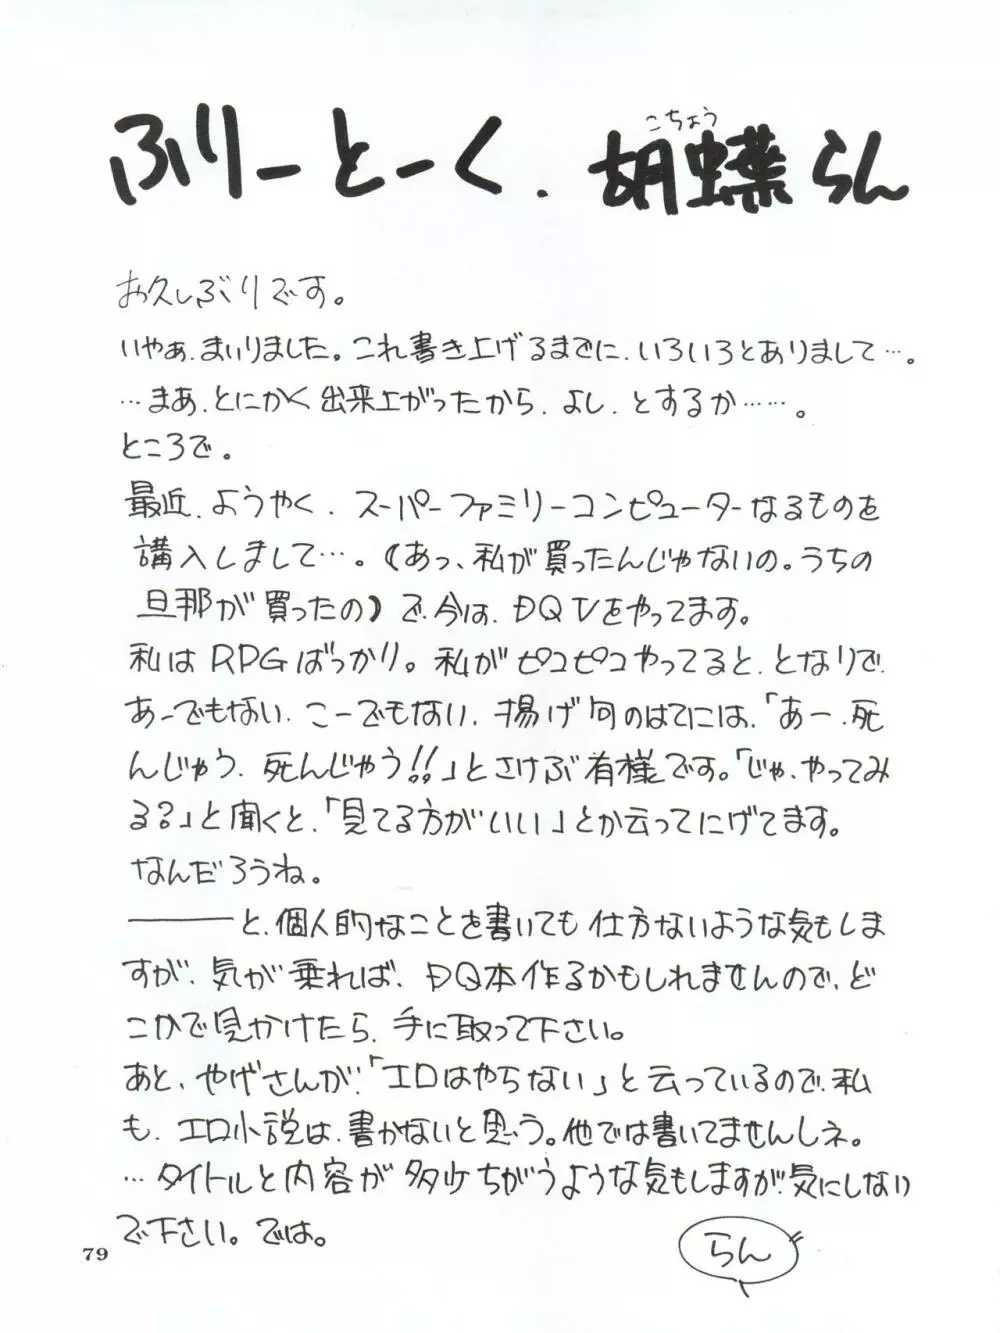 ふりーとーく. 胡蝶らん
こちょう
お久しぶりです。
いやぁ、まいりました。これ書き上げるまでに、いろいろとありまして…。
…まあ、とにかく出来上がったから、よし、とするか……。
ところで。
最近、ようやく、スーパーファミリーコンピューターなるものを
講入しまして…。(あっ、私が買ったんじゃないの。うちの
旦那が買ったの)で、今は、DQVをやってます。
私はRPGばっかり。私がピコピコやってると、となりで、
あーでもない、こーでもない、揚げ句のはてには、「あー、死
んじゃう、死んじゃう!!」とさけぶ有様です。「じゃ、やってみ
る?」と聞くと、「見てる方がいい」とか云ってにげてます。
なんだろうね。
────と、個人的なことを書いても仕方ないような気もしま
すが、気が乗れば、DQ本作るかもしれませんので、ど
こかで見かけたら、手に取って下さい。
あと、やげさんが、「エロはやらない」と云っているので、私
も、エロ小説は、書かないと思う。他では書いてませんしネ。
…タイトルと内容が多少ちがうような気もしますが、気にしない
で下さい。では。
らん
79